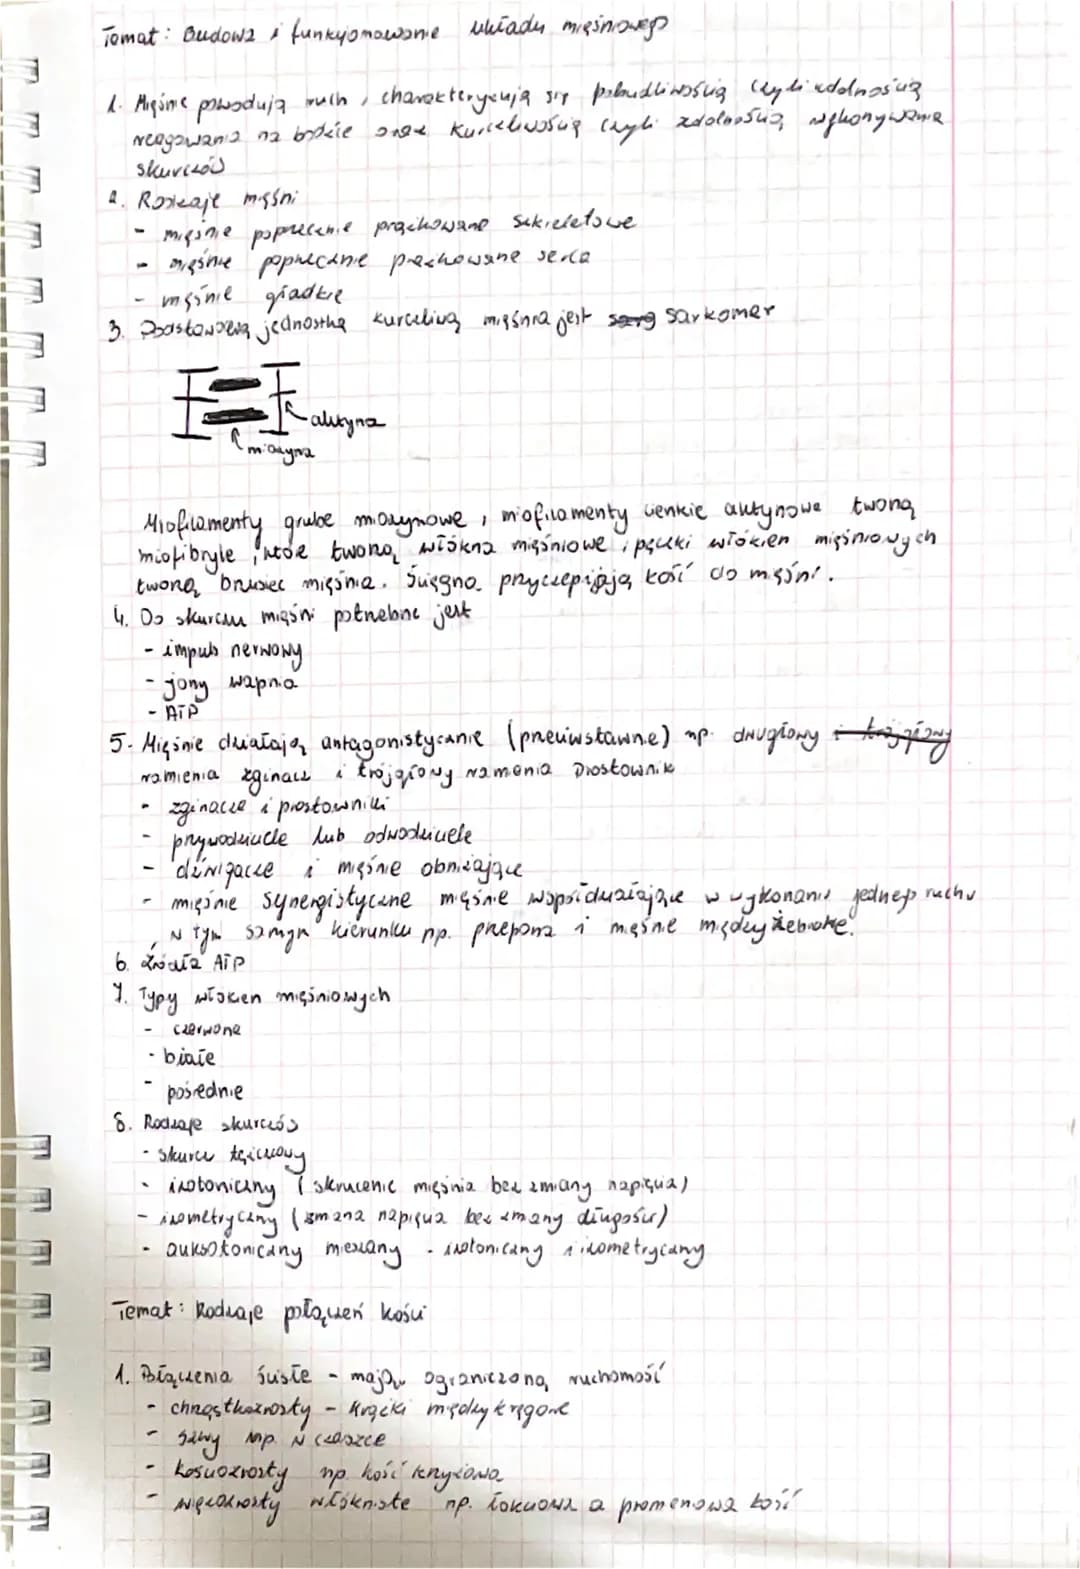 Temat: Budowa i funkcjonowanie układu mięśniowego
1. Mięśnie powodują ruch, charakteryzują się pobudliwością czyli zdolnością
reagowania na bodźce oraz kurczliwością czyli zdolnością wykonywania
skurczów
2. Rodzaje mięśni
- mięśnie poprzecznie prążkowane szkieletowe
- mięśnie poprzecznie prążkowane serca
- mięśnie gładkie
3. Podstawową jednostką kurczliwą mięśnia jest sarkomer
aktyna
miozyna
Miofilamenty grube miozynowe, miofilamenty cienkie aktynowe tworzą
miofibryle, które tworzą włókna mięśniowe, pęczki włókien mięśniowych
tworzą brzusiec mięśnia. Ścięgna przyczepiają kość do mięśni.
4. Do skurczu mięśni potrzebne jest
- impuls nerwowy
- jony wapnia
- ATP
5. Mięśnie działają antagonistycznie (przeciwstawne) np. dwugłowy i trójgłowy
ramienia zginacz i trójgłowy ramienia prostownik
- zginacze i prostowniki
- przywodziciele lub odwodziciele
- dźwigacze i mięśnie obniżające
- mięśnie synergistyczne mięśnie współdziałające w wykonaniu jednego ruchu
w tym samym kierunku np. przepona i mięśnie międzyżebrowe.
6. Źródła ATP
7. Typy włókien mięśniowych
- czerwone
- białe
- pośrednie
8. Rodzaje skurczów
- skurcz tężcowy
- izotoniczny (skrucenie mięśnia bez zmiany napięcia)
- izometryczny (zmana napięcia bez zmany długości)
- auksotoniczny mieszany - izotoniczny i izometryczny
Temat: Rodzaje połączeń kości
1. Połączenia ścisłe - mają ograniczoną ruchomość
- chrząstkozrosty - krążki międzykręgowe
- szwy np. w czaszce
- kościozrosty np. kość krzyżowa
- więzozrosty włókniste np. łokciowa a promieniowa kość